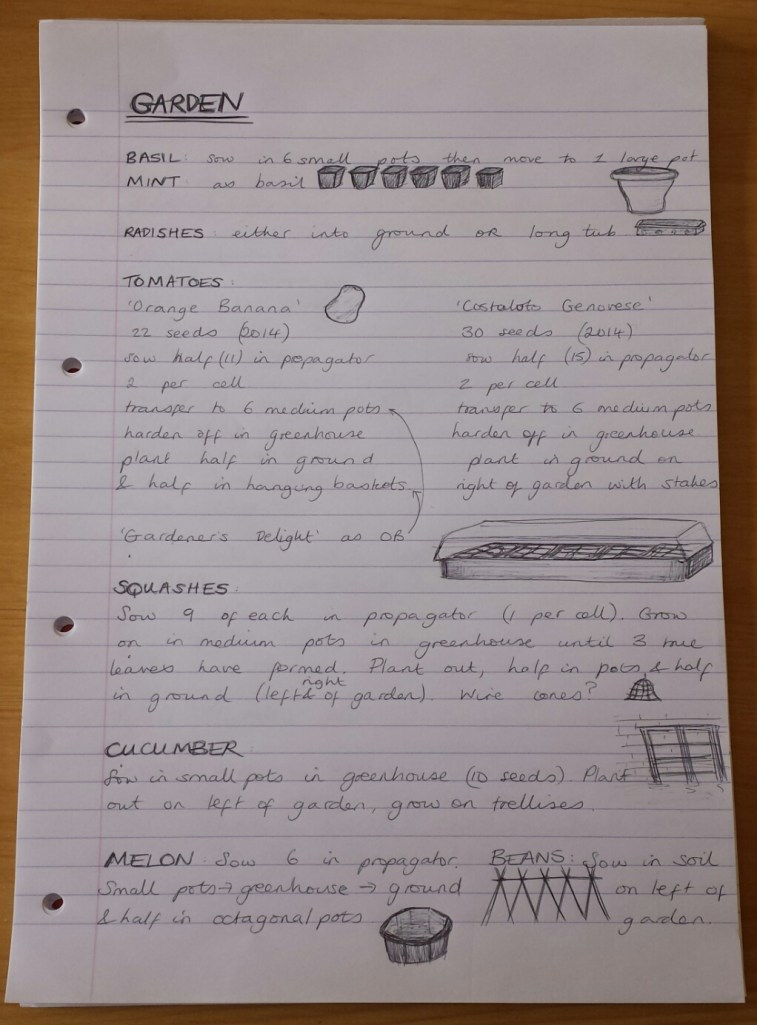 GARDEN
BASIL: sow in 6 small pots then move to 1 large pot
MINT: as basil
RADISHES: either into ground OR long tub
TOMATOES:
'Orange Banana'
22 seeds (2014)
sow half (11) in propagator
2 per cell
transfer to 6 medium pots
harden off in greenhouse
plant half in ground
& half in hanging baskets
'Gardener's Delight' as OB
'Costaloto Genovese'
30 seeds (2014)
sow half (15) in propagator
2 per cell
transfer to 6 medium pots
harden off in greenhouse
plant in ground on
right of garden with stakes
SQUASHES:
Sow 9 of each in propagator (1 per cell). Grow
on in medium pots in greenhouse until 3 true
leaves have formed. Plant out, half in pots & half
in ground (left & right of garden). Wire cones?
CUCUMBER:
Sow in small pots in greenhouse (10 seeds). Plant
out on left of garden, grow on trellises.
MELON: Sow 6 in propagator.
Small pots → greenhouse → ground
& half in octagonal pots
BEANS: Sow in soil
on left of
garden.